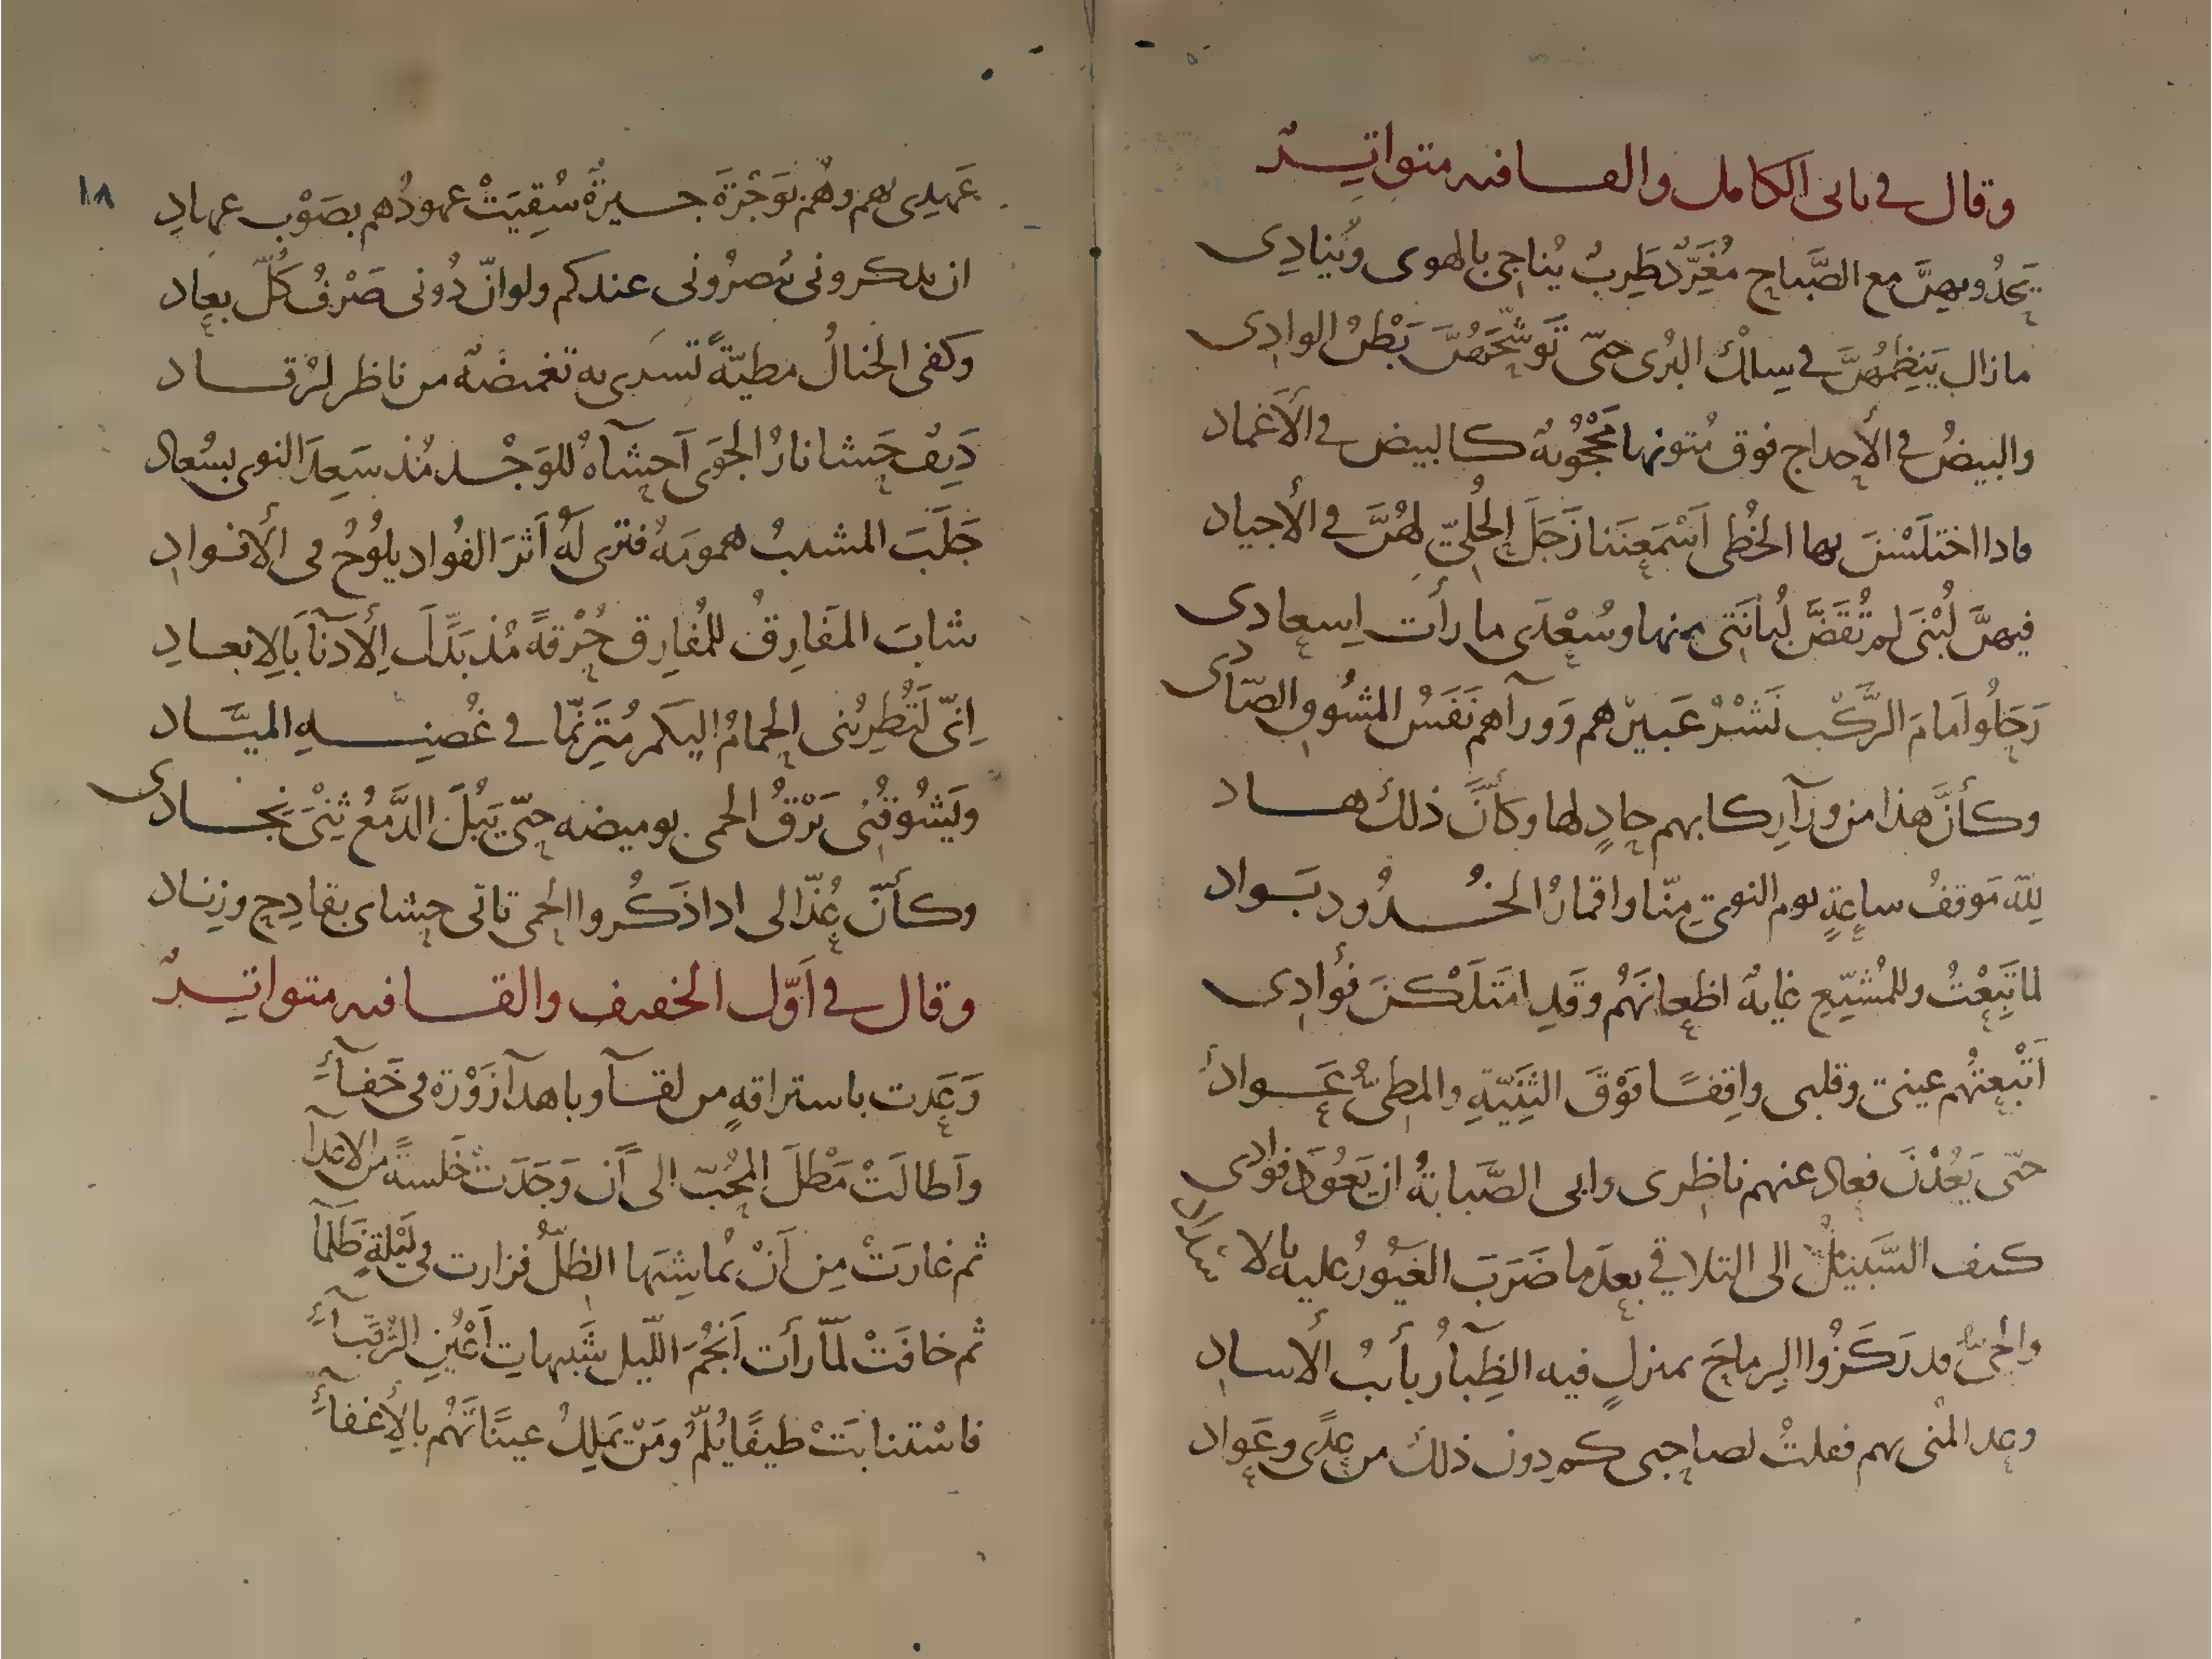 وقال في ثاني الكامل والقافيه متواترٌ
يَحْدُو بهِنَّ مع الصَّباحِ مُغَرِّدٌ طَرِبٌ يُناجي بالهوى ويُنادِى
مازال يَنظِمُهُنَّ في سِلْكِ البُرى حتّى تَوشَّحَهُنَّ بَطْنُ الوادِى
والبيضُ في الأحداج فوق مُتونها مَحْجُوبةٌ كالبيض في الأَغماد
فاذا اختلَسْنَ بها الخُطى اَسْمَعنَنا زَجَلَ الحُلِيّ لهُنَّ في الأَجياد
فيهنَّ لُبْنَى لم تُقَضَّ لُبانَتى منها وسُعْدَى ما رأت اِسعادى
رَحَلُوا اَمامَ الرَّكْب نَشْرُ عَبيرهم وَورآهم نَفَسُ المشُوق الصّادى
وكأنَّ هذا من ورآ ركابهم حادٍ لها وكأنَّ ذلك هاد
لِلّه مَوقفُ ساعةٍ يوم النوى مِنّا واقمارُ الخُدُود بَواد
لما تَبِعْتُ وللمُشَيِّعِ غايةٌ اظعانَهُم وقَدِ امتَلَكْنَ فؤادِى
اَتْبَعتُهم عينى وقلبى واقِفًا فَوْقَ الثَنِيّةِ والمطىُّ غَواد
حتّى يَعُدْنَ فعاد عنهم ناظرى وابى الصَّبابةُ ان يَعُودَ فوادى
كيف السَّبيلُ الى التلاقي بعدَما ضَرَبَ الغَيُورُ عليه بالاسداد
والحىُّ قد رَكَزُوا الرِماحَ بمنزلٍ فيه الظِبآ رَبائبُ الأساد
وعد المُنى بهم فقلتُ لصاحبى كم دون ذلك من عِدًى وعَواد
١٨
عَهدِى بهم وهُم بوَجْرَةَ جيرةٌ سُقِيَتْ عهودُهم بصَوْب عهادِ
ان يذكرونى يُبصرُونى عندكم ولو انّ دُونى صَرْفُ كُلّ بعاد
وكفى الخيالُ مطيّةً تسرى به تغميضةٌ من ناظر لرُقاد
دَنِفٌ حَشا نارُ الجوَى اَحشآهُ للوَجْد مُذ سَعِدَ النوى بسُعاد
جَلَبَ المشيبُ همومَهُ فترى لَهُ اَثرَ الفُواد يلُوحُ فى الأفواد
شابَ المَفارِقُ للمُفارِق حُرْقةً مُذ بَدَّلَ الأدنآ بَالِابعادِ
اِنّى لَتُطرِبُنى الحمامُ اليكم مُتَرَنّما في غُصنِهِ الميَّاد
ويَشُوقُنى بَرْقُ الحمى بوميضه حتّى يَبُلَ الدَّمعُ ثِنْىَ نِجادى
وكأنّ عُذّالى اذا ذَكُروا الحمى تاتى حشاى بقادِحٍ وزِناد
وقال في اَوّل الخفيف والقافيه متواترٌ
وَعَدت باستراقةٍ من لقآ وباهدآ زَوْرة فى خَفآءِ
واَطالَتْ مَطْلَ المُحبّ الى اَن وَجَدَتْ خُلسةً من الاعدآ
ثم غارَتْ مِن اَنْ يُماشِيَها الظلُّ فزارت فى لَيْلةٍ ظَلمآ
ثم خافَتْ لَمّا رأت اَنجُمَ اللّيل شَبيهاتِ اَعْيُنِ الرُقبآءِ
فاسْتنابَتْ طيفًا يُلمُّ ومَنْ يَملِكُ عينًا تَهُم بالأغفآءِ